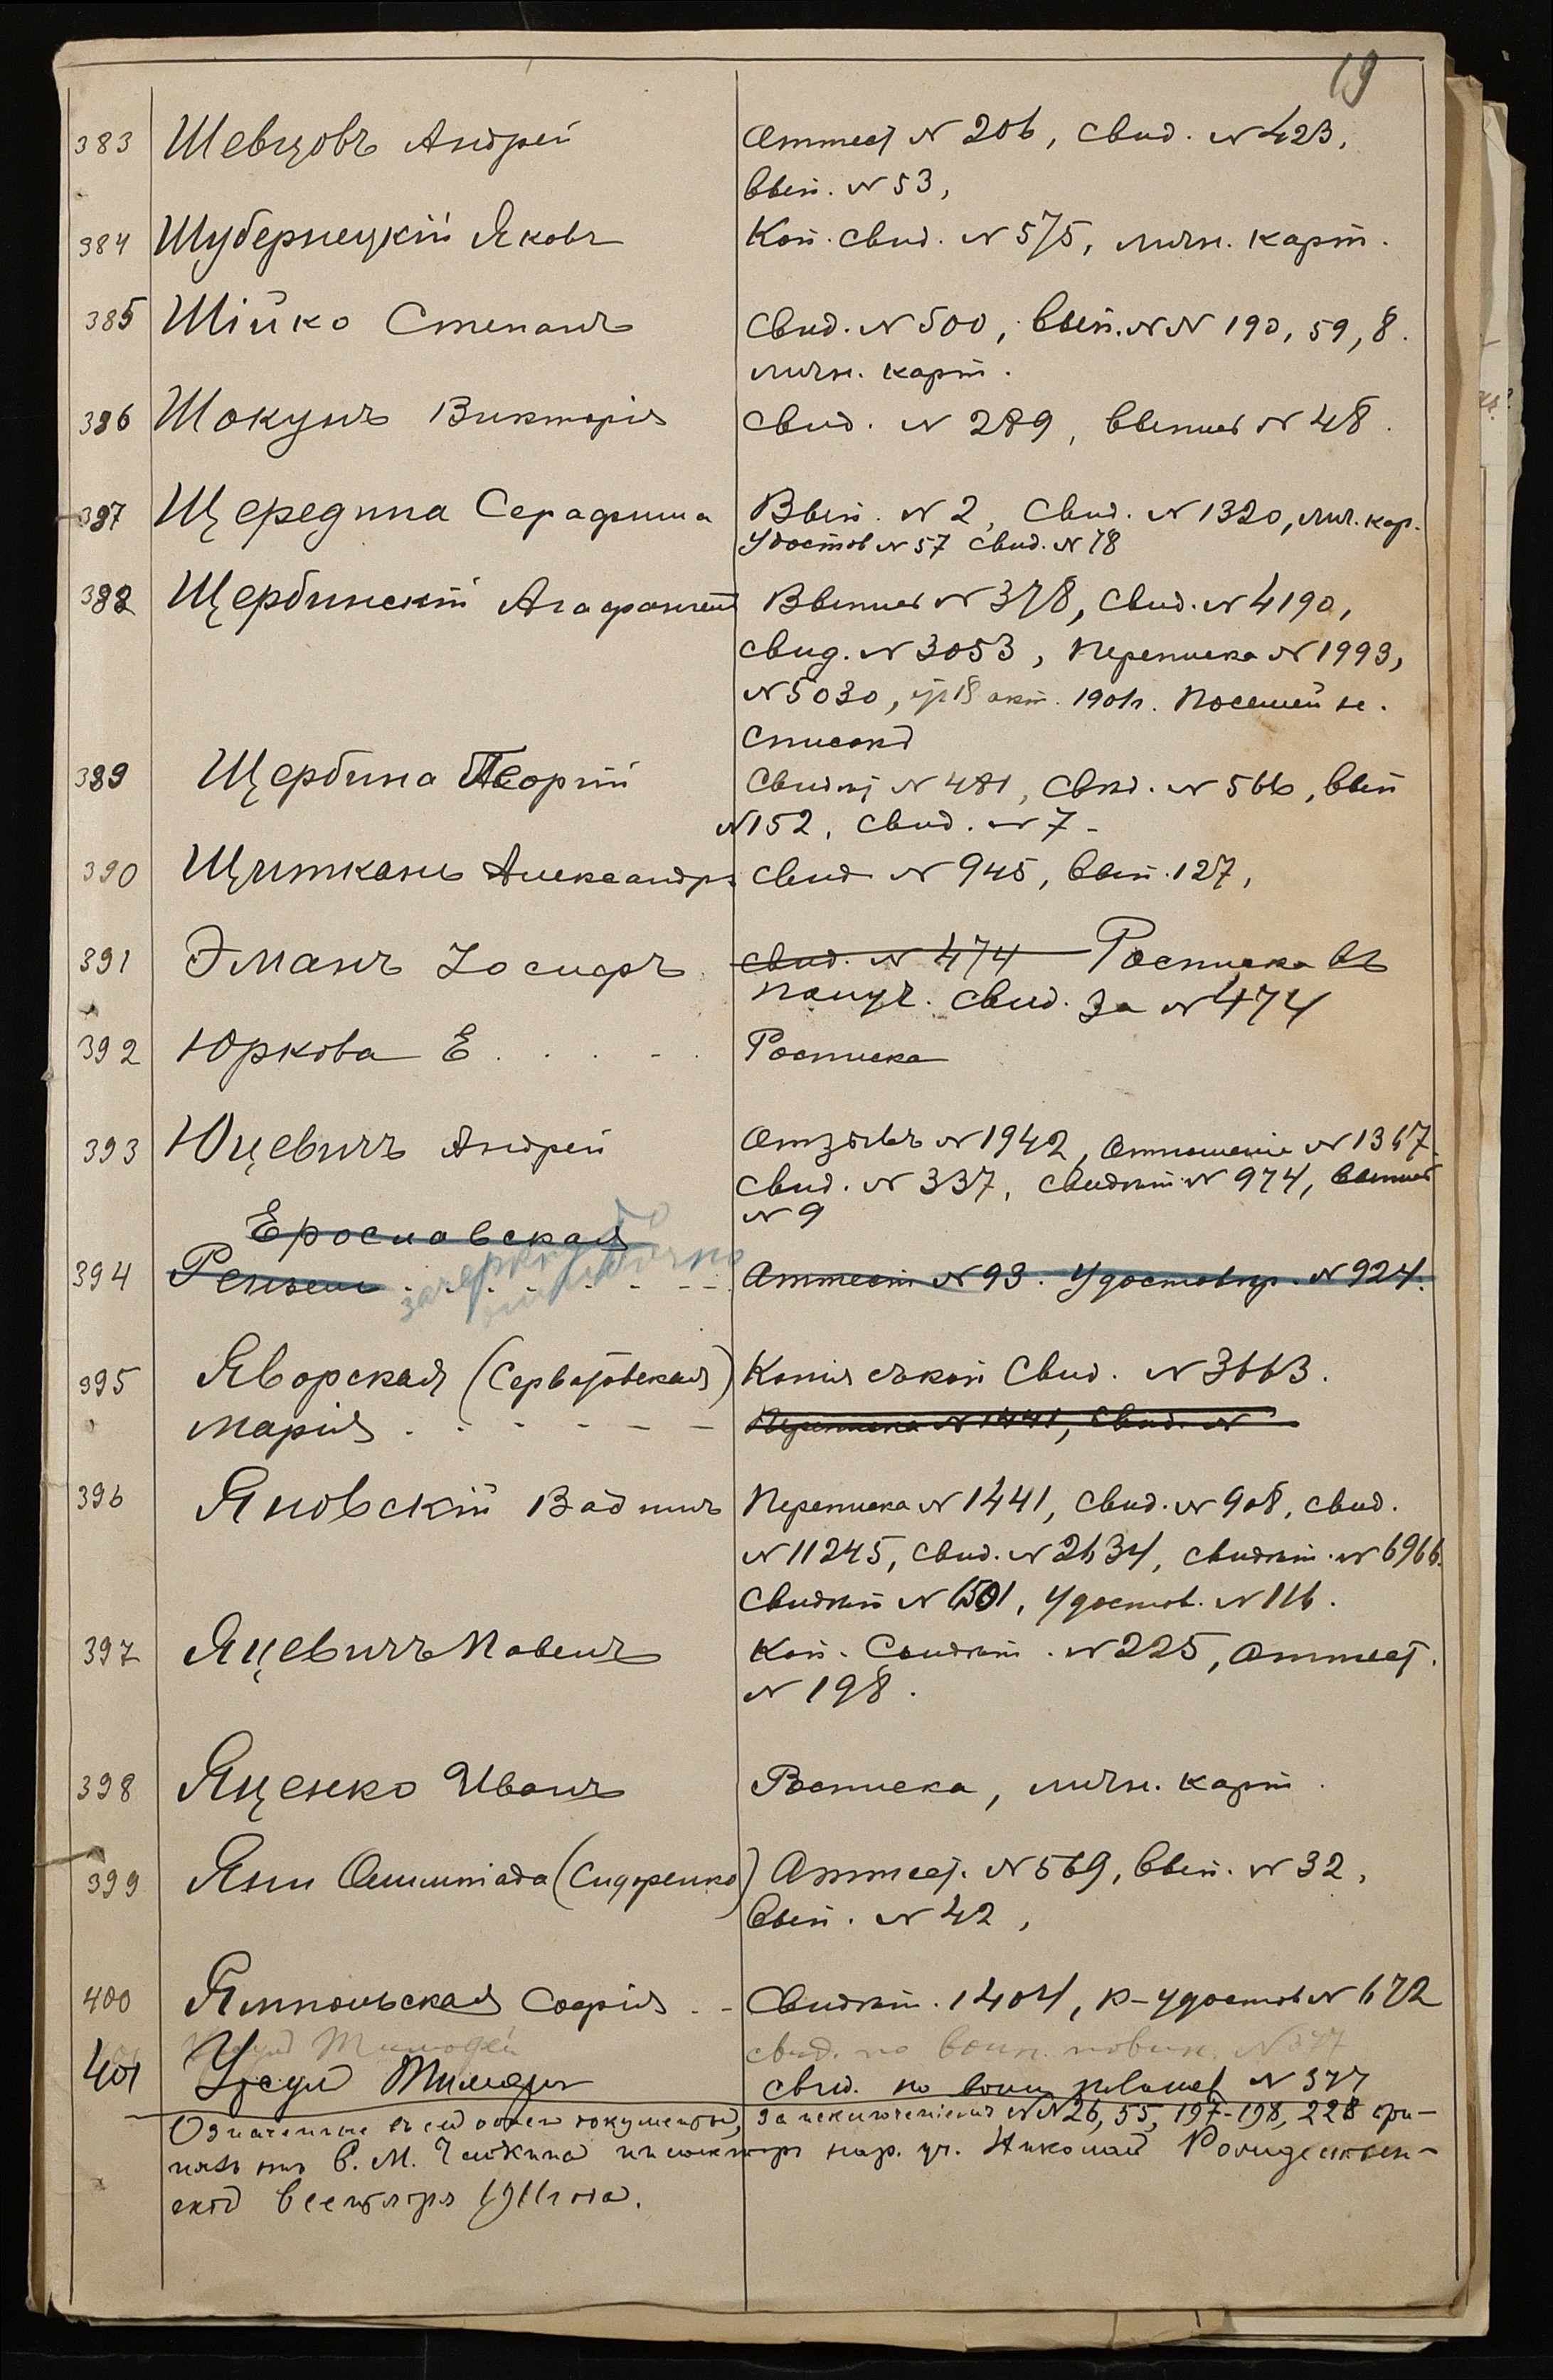 19
383 Шевцовъ Андрей Аттест N 206, Свид. N 423,
вып. N 53,
384 Шубернецкій Яковъ Коп. Свид. N 575, личн. карт.
385 Шійко Степанъ Свид. N 500, вып. NN 190, 59, 8.
личн. карт.
386 Шокунъ Викторія Свид. N 289, выпись N 48.
387 Щередина Серафима Вып. N 2, Свид. N 1320, лич. кар.
Удостов N 57 Свид. N 78
388 Щербинскій Агафангелъ Выпись N 378, Свид. N 4190,
Свид. N 3053, Переписка N 1993,
N 5030, 18 окт. 1901г. Посемейн.
Списокъ
389 Щербина Георгій N 481, Свид. N 566, вып
N 152, Свид. N 7
390 Щиткань Александръ Свид N 945, вып. 127,
391 Эманъ Іосифъ Свид. N 474 Росписка въ
получ. Свид. за N 474
392 Юркова Е. . . . . Росписка
393 Юцевичъ Андрей Отзывъ N 1942, Отношеніе N 1367.
Свид. N 337, Свидѣт. N 974, выпись
N 9
Ерославская
394 . . . . . . . Аттест N 93. Удостовѣр. N 924.
зачеркнуто
ошибочно
395 Яворская (Серватовская) Копія съ коп Свид. N 3663.
Марія . . . . . . Переписка N 1441, Свид. N
396 Яновскій Вадимъ Переписка N 1441, Свид. N 908, Свид.
N 11245, Свид. N 2634, Свидѣт. N 6966.
Свидѣт N 6501, Удостов. N 116.
397 Яцевичъ Павелъ Коп. Свидѣт. N 225, Аттест.
N 198.
398 Яценко Иванъ Росписка, личн. карт.
399 Яни Олимпіада (Сидоренко) Аттест. N 569, вып. N 32,
вып. N 42,
400 Ямпольская Софія . - Свидѣт. 1404, К-удостов N 672
Тимофей свид. по воин. повин. N 377
401 Тимофей свид. по воин повинност N 377
Означенные въ сей описи документы, за исключеніемъ NN 26, 55, 197-198, 228 при-
нялъ отъ С. М. инспекторъ нар. уч. Николай Рождествен-
скій 1911 года.